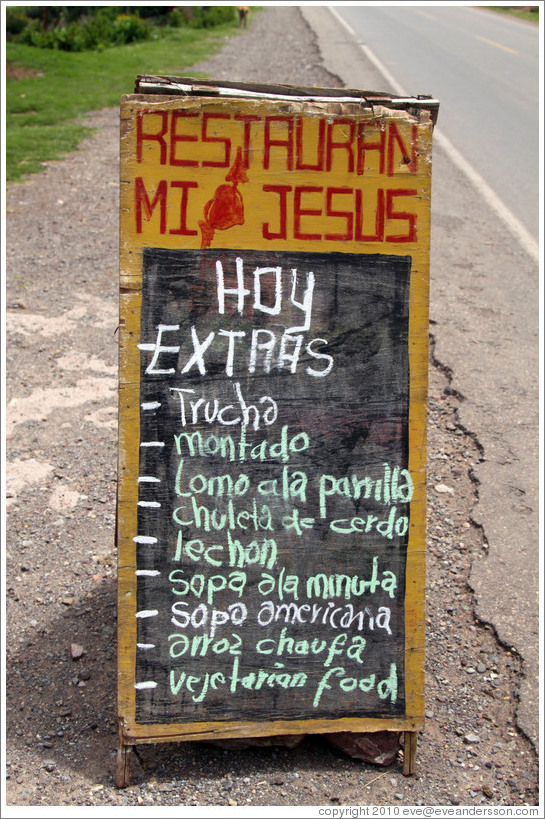 RESTAURAN
MI JESUS
HOY
EXTRAS
- Trucha
- montado
- Lomo ala parrilla
- chuleta de cerdo
- lechon
- sopa ala minuta
- sopa americana
- arroz chaufa
- vejetarian food
copyright 2010 eve@eveandersson.com